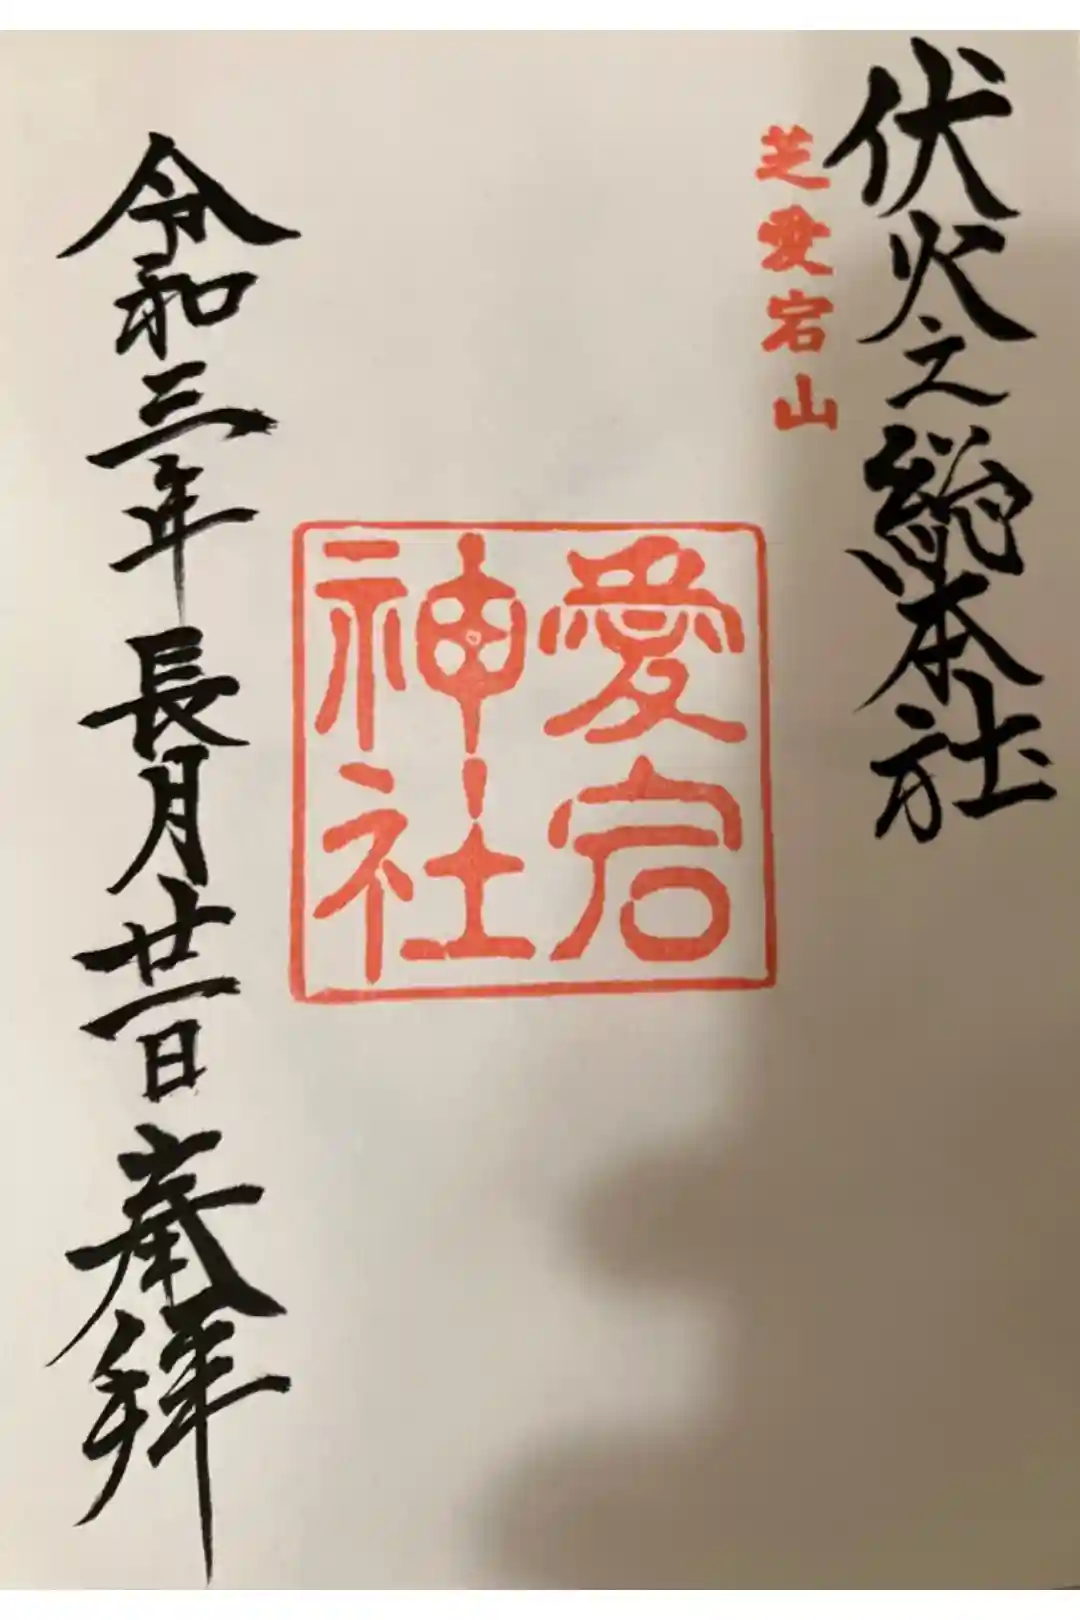 伏火之総本社
芝愛宕山
愛宕
神社
令和三年長月廿一日奉拝